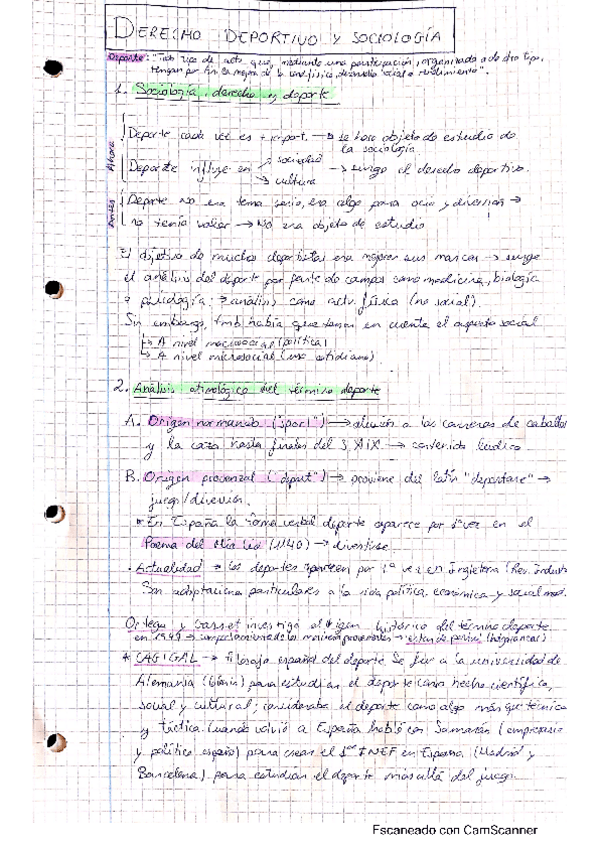 DERECHO DEPORTIVO Y SOCIOLOGÍA
Deporte: "Todo tipo de acto que, mediante una participación, organizada o de otro tipo,
tengan por fin la mejora de la cond. física, desarrollo social o rendimiento".
1. Sociología, derecho y deporte
Ahora
Deporte cada vez es + import. → se hace objeto de estudio de
la sociología
Deporte influye en → sociedad → surge el derecho deportivo.
→ cultura
Antes
Deporte no era tema serio, era algo para ocio y diversión →
no tenía valor → No era objeto de estudio
El objetivo de muchos deportistas era mejorar sus marcas → surge
el análisis del deporte por parte de campos como medicina, biología
o psicología → análisis como activ. física (no social).
Sin embargo, tmb había que tener en cuenta el aspecto social
↳ A nivel macrosocial (política)
↳ A nivel microsocial (uso cotidiano)
2. Análisis etimológico del término deporte
A. Origen normando ("sport") → alusión a las carreras de caballos
y la caza hasta finales del S. XIX → contenido lúdico.
B. Origen provenzal ("deport") → proviene del latín "deportare" →
juego/diversión.
* En España la forma verbal deporte aparece por 1ª vez en el
Poema del Mio Cid (1140) → divertirse.
· Actualidad → Los deportes aparecen por 1ª vez en Inglaterra (Rev. Indust
Son adaptaciones particulares a la vida política, económica y social mod.
Ortega y Gasset investigó el origen histórico del término deporte
en 1949 →
* CAGIGAL → Filósofo español del deporte. Se fue a la universidad de
Alemania para estudiar el deporte como hecho científico,
social y cultural; consideraba el deporte como algo más que técnica
y táctica. Cuando volvió a España habló con Samaranch (empresario
y político español) para crear el 1er INEF en España (Madrid y
Barcelona) para estudiar el deporte más allá del juego.
Escaneado con CamScanner